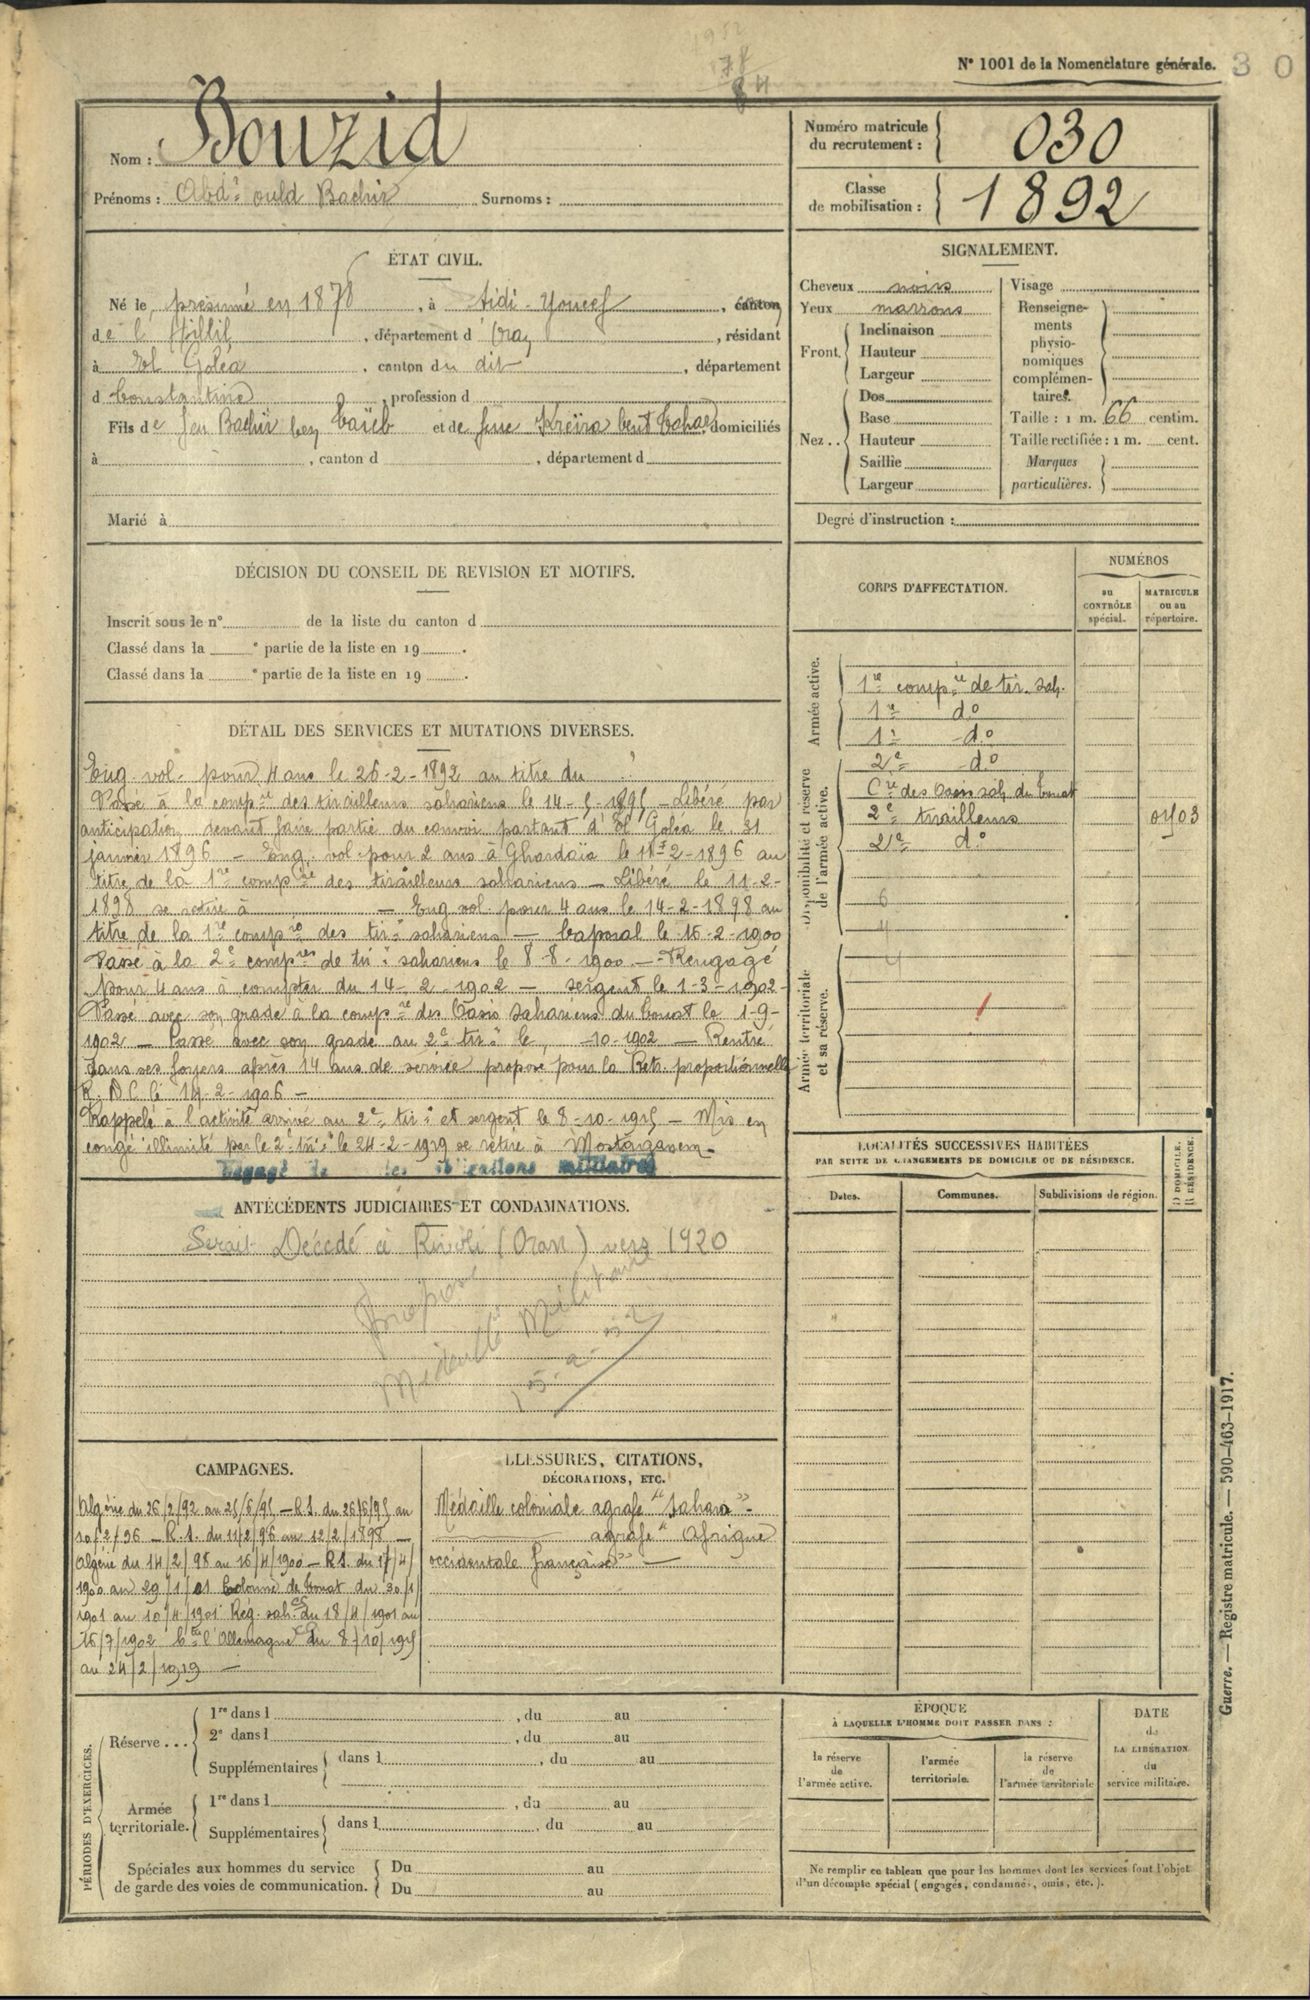 N° 1001 de la Nomenclature générale. 30
1952
78
84
Nom : Bouzid
Prénoms : Abd. ould Bachir Surnoms :
Numéro matricule du recrutement : 030
Classe de mobilisation : 1892
ÉTAT CIVIL.
Né le présumé en 1878, à Sidi-Youcef, canton
de l'Hillil, département d'Oran, résidant
à El Goléa, canton du dit, département
d Constantine, profession d
Fils de feu Bachir ben Taïeb et de feue Kreïra bent Tahar domiciliés
à , canton d , département d
Marié à
SIGNALEMENT.
Cheveux noirs
Yeux marrons
Front. Inclinaison
Hauteur
Largeur
Nez .. Dos
Base
Hauteur
Saillie
Largeur
Visage
Renseigne-
ments
physio-
nomiques
complémen-
taires.
Taille : 1 m. 66 centim.
Taille rectifiée : 1 m. cent.
Marques
particulières.
Degré d'instruction :
DÉCISION DU CONSEIL DE REVISION ET MOTIFS.
Inscrit sous le n° de la liste du canton d
Classé dans la e partie de la liste en 19 .
Classé dans la e partie de la liste en 19 .
DÉTAIL DES SERVICES ET MUTATIONS DIVERSES.
Eng. vol. pour 4 ans le 26-2-1892 au titre du ?
Passé à la comp.ie des tirailleurs sahariens le 14-5-1895 – Libéré par
anticipation devant faire partie du convoi partant d'El Goléa le 31
janvier 1896 – Eng. vol. pour 2 ans à Ghardaïa le 11-2-1896 au
titre de la 1re comp.ie des tirailleurs sahariens – Libéré le 11-2-
1898 se retire à – Eng vol. pour 4 ans le 14-2-1898 au
titre de la 1re comp.ie des tir.s sahariens – Caporal le 16-2-1900
Passé à la 2e comp.ie de tir.s sahariens le 8-8-1900 – Rengagé
pour 4 ans à compter du 14-2-1902 – Sergent le 1-3-1902 –
Passé avec son grade à la comp.ie des Oasis Sahariens du Touat le 1-9-
1902 – Passé avec son grade au 2e tir.s le -10-1902 – Rentré
dans ses foyers après 14 ans de service proposé pour la Retr. proportionnelle
R. D C le 14-2-1906 –
Rappelé à l'activité arrivé au 2e tir.s et sergent le 8-10-1915 – Mis en
congé illimité par le 2e tir.s le 24-2-1919 se retire à Mostaganem –
Dégagé de les obligations militaires
ANTÉCÉDENTS JUDICIAIRES ET CONDAMNATIONS.
Serait Décédé à Rivoli (Oran) vers 1920
Proposé
Médaille Militaire
CORPS D'AFFECTATION.
NUMÉROS
au CONTRÔLE spécial.
MATRICULE ou au répertoire.
Armée active.
1re comp.ie de tir. sah.
1re do
1re do
2e do
Disponibilité et réserve de l'armée active.
Cie des Oasis sah. du Touat
2e tirailleurs 01503
2e do
6
4
4
Armée territoriale et sa réserve.
LOCALITÉS SUCCESSIVES HABITÉES
PAR SUITE DE CHANGEMENTS DE DOMICILE OU DE RÉSIDENCE.
Dates. Communes. Subdivisions de région. D DOMICILE. R RÉSIDENCE.
CAMPAGNES.
Algérie du 26/2/92 au 25/6/95 – R.S. du 26/6/95 au
10/2/96 – R.S. du 11/2/96 au 12/2/1898 –
Algérie du 14/2/98 au 16/4/1900 – R.S. du 17/4/
1900 au 29/1/01 Colonne de Touat du 30/1/
1901 au 10/4/1901 Rég. sah.es du 18/4/1901 au
16/7/1902 C.tre l'Allemagne du 8/10/1915
au 24/2/1919 –
BLESSURES, CITATIONS,
DÉCORATIONS, ETC.
Médaille coloniale agrafe "Sahara" –
agrafe "Afrique
occidentale française" –
PÉRIODES D'EXERCICES.
Réserve ...
1re dans l , du au
2e dans l , du au
Supplémentaires dans l , du au
Armée territoriale.
1re dans l , du au
Supplémentaires dans l , du au
Spéciales aux hommes du service
de garde des voies de communication.
Du au
Du au
ÉPOQUE
À LAQUELLE L'HOMME DOIT PASSER DANS :
la réserve de l'armée active.
l'armée territoriale.
la réserve de l'armée territoriale
DATE
de
LA LIBÉRATION
du
service militaire.
Ne remplir ce tableau que pour les hommes dont les services font l'objet
d'un décompte spécial (engagés, condamnés, omis, etc.).
Guerre. — Registre matricule. — 590-463-1917.